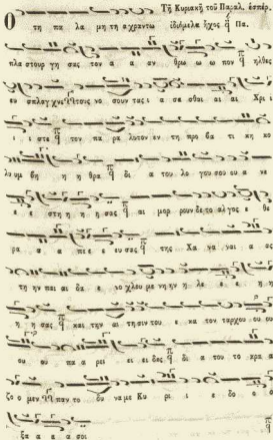 Τῇ Κυριακῇ τοῦ Παραλ. ἑσπέρ.
τη πα λα μη τη α χραντω ἰδιόμελα ἦχος Πα.
πλα στουρ γη σας τον α α αν θρω ω ω πον ηλθες
εν σπλαγχνε τους νο σουν τας ι α σα σθαι αι αι Χρι ι
ι στε τον πα ρα λυτον εν τη προ βα τι κη κο
λυ υμ βη η η θρα δι α του λο γου σου ου α νε
ε ε στη η η η σας αι μορ ρουν δε το αλ γος ε θε
ρα α α πε ε ευ σας της Χα να ναι α ας
τη ην παι δα ε νο χλου με νη ην η λε ε ε η η
η η σας και την αι τη σιν του ε κα τον ταρ χου ου ου
ου ου πα α ρει ει ει δες δι α του το κρα α
ζο ο μεν παν το δυ να με Κυ ρι ι ε δο ο ο
ξα α α α σοι